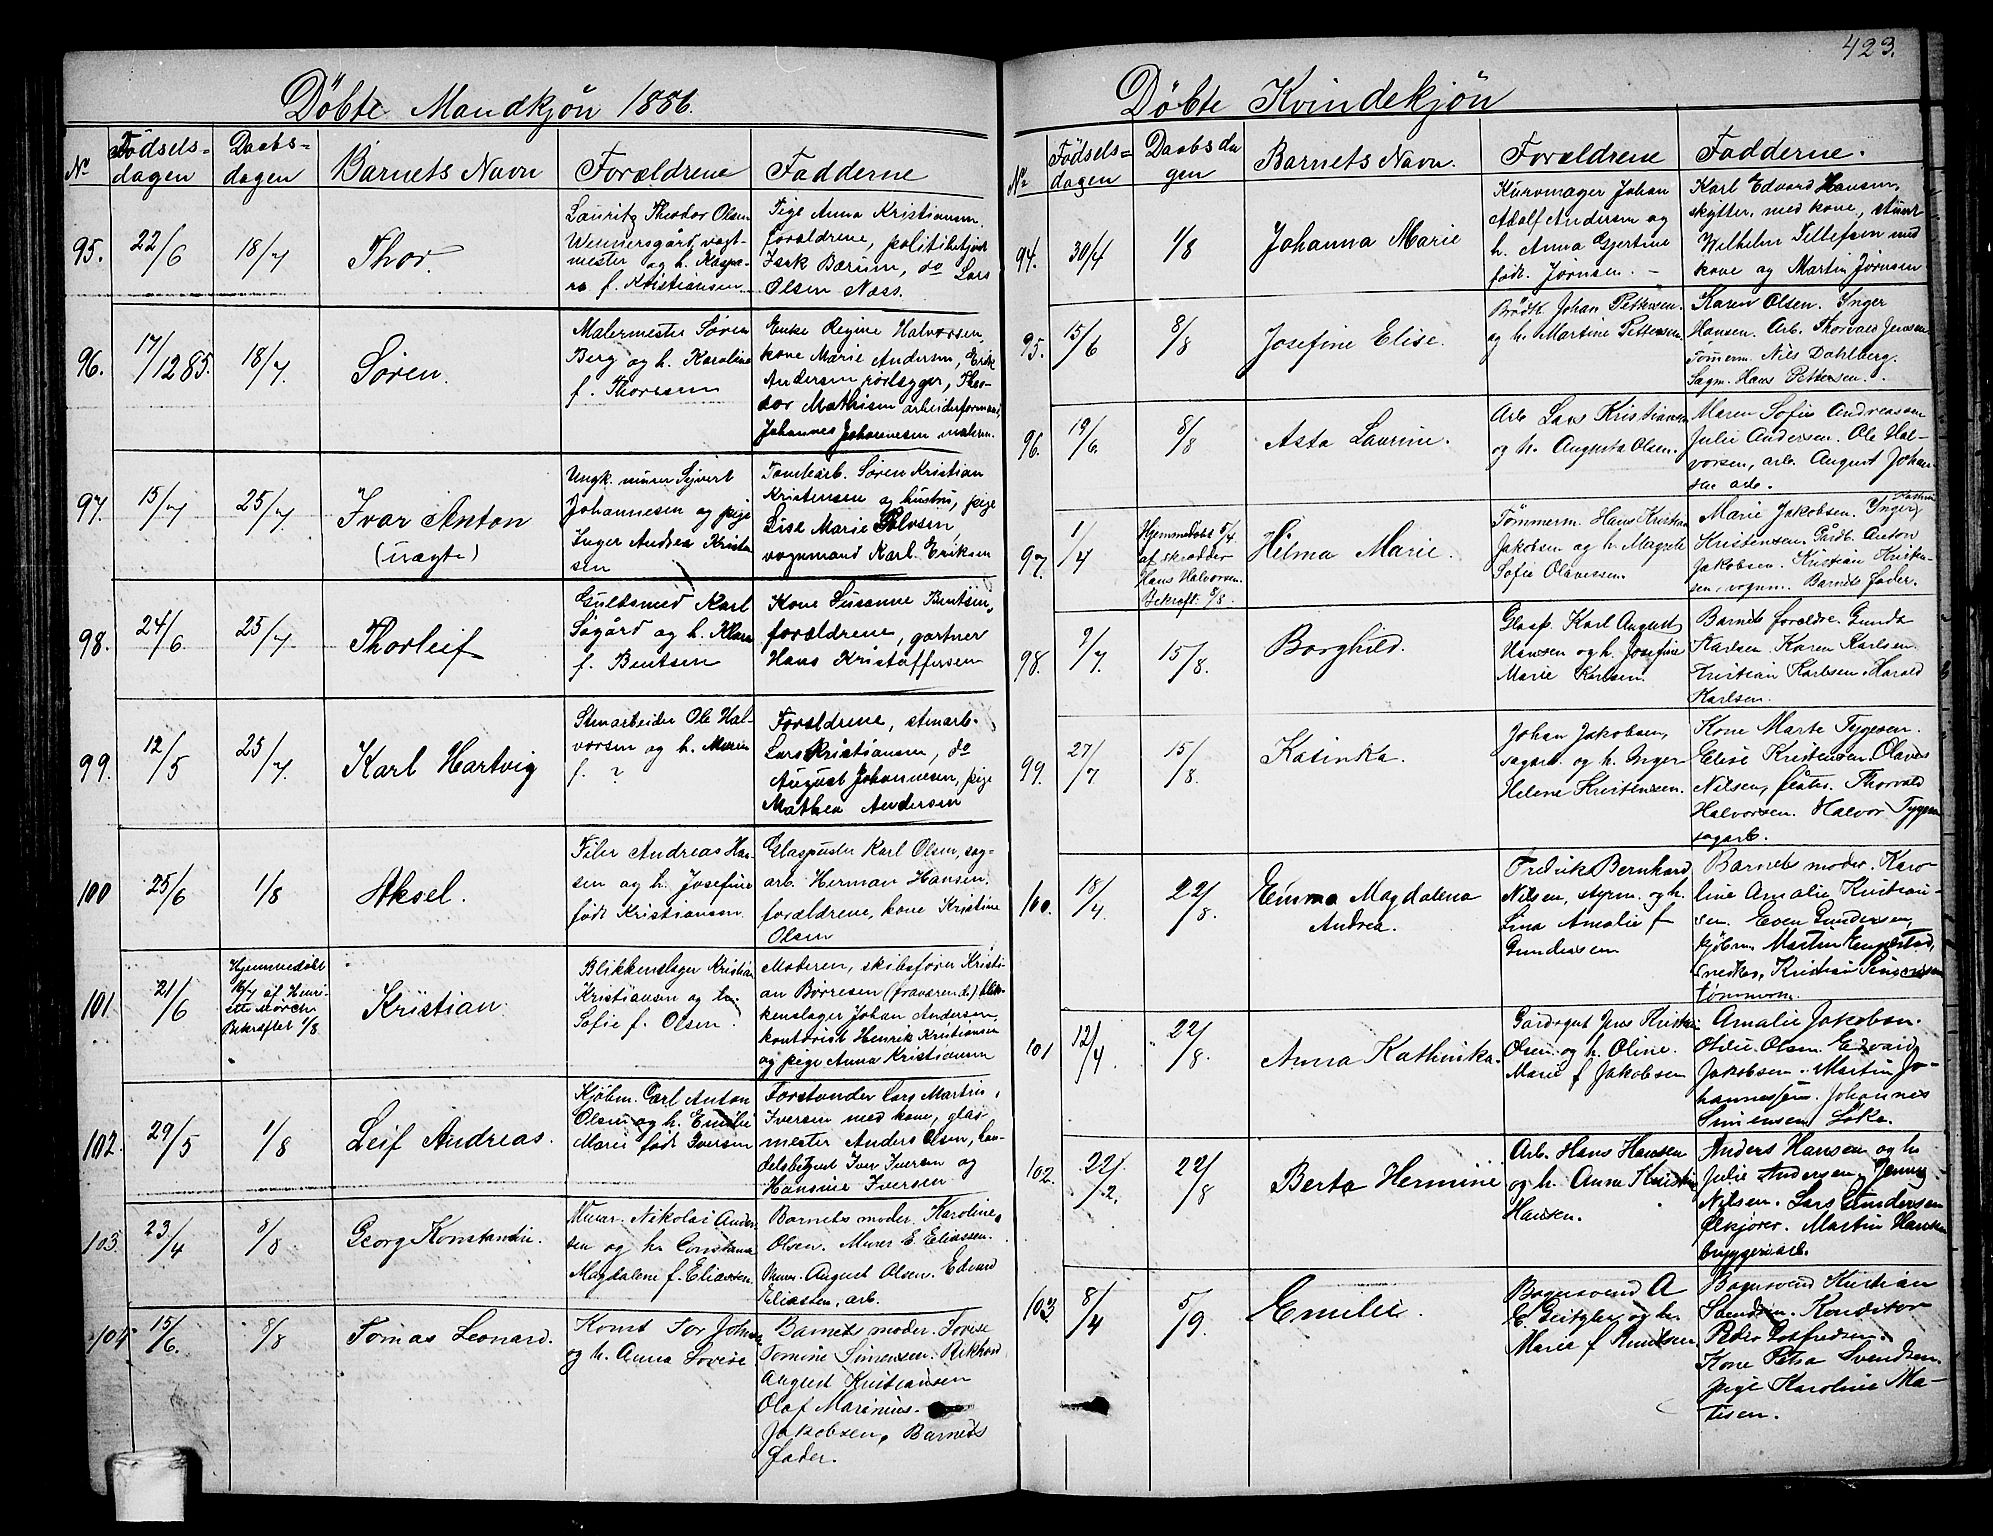 423.
Döbte Mandkjön 1886.
No
Fødsels=
dagen
Daabs=
dagen
Barnets Navn
Forældrene
Fadderne
95.
22/6
18/7
Thor.
Lauritz Theodor Olsen
Wennersgård, vagt-
mester og h. Kaspa-
ra f. Kristiansen.
Pige Anna Kristiansen.
forældrene, politibetjent
Isak Bærum, do Lars
Olsen Næss.
96.
17/1285.
18/7.
Søren.
Malermester Søren
Berg og h. Karoline
f. Thoresen
Enke Regine Halvorsen,
kone Marie Andersen, Erik
Andersen rørlægger, Theo-
dor Mathisen arbeiderformand,
Johannes Johannesen malerm.
97.
15/7
25/7
Ivar Anton
(uægte)
Ungk. murer Syvert
Johannesen og pige
Inger Andrea Kristen
sen
Tomtearb. Søren Kristian
Kristensen og hustru, pige
Lise Marie Olsen
vognmand Karl Eriksen
98.
24/6.
25/7.
Thorleif
Guldsmed Karl
Søgård og h. Klara
f. Bentsen
Kone Susanne Bentsen,
forældrene, gartner
Hans Kristoffersen
99.
12/5
25/7.
Karl Hartvig
Stenarbeider Ole Hal-
vorsen og h. Maren
f. ?
Forældrene, stenarb.
Lars Kristiansen, do
August Johannesen, pige
Mathea Andersen
100
25/6
1/8
Aksel.
Filer Andreas Han
sen og h. Josefine
født Kristiansen.
Glaspuster Karl Olsen, sag-
arb. Herman Hansen.
forældrene, kone Kristine
Olsen
101.
21/6
Hjemmedøbt
16/7 af Henri-
ette Mørch
Bekræftet 1/8
Kristian.
Blikkenslager Kristian
Kristiansen og h.
Sofie f. Olsen.
Moderen, skibsfører Kristi-
an Børresen (fraværende) blik-
kenslager Johan Andersen,
kontorist Henrik Kristiansen
og pige Anna Kristiansen
102.
29/5
1/8
Leif Andreas.
Kjöbm. Carl Anton
Olsen og h. Emilie
Marie født Iversen
Forstander Lars Martin
Iversen med kone, glas
mester Anders Olsen, han-
delsbetjent Iver Iversen og
Hansine Iversen
103.
23/4
8/8
Georg Konstantin.
Murer. Nikolai Ander
sen og h. Constanse
Magdalene f. Eliassen.
Barnets moder. Karoline
Olsen. Murer E. Eliassen.
Murer. August Olsen. Edvard
Eliassen, arb.
104
15/6.
8/8
Tomas Leonard.
Konst Tor Johns
og h. Anna Lovise
Barnets moder. Lovise
Tomine Simensen. Rikhard
August Kristiansen
Olaf Marinius.
Jakobsen, Barnets
fader.
Döbte Kvindekjön
No
Fødsels=
dagen
Daabsda
gen
Barnets Navn.
Forældrene
Fadderne.
94.
30/4
1/8
Johanna Marie
Kurvmager Johan
Adolf Andersen og
h. Anna Gjertine
født. Jørnsen. –
Karl Edvard Hansen,
skytter, med kone,
Wilhelm Tellefsen med
kone og Martin Jørnsen
95.
15/6
8/8
Josefine Elise.
Brødh. Johan Pettersen.
og h. Martine Pettersen.
Karen Olsen. Inger
Hansen. Arb. Thorvald Jensen
Tømerm. Nils Dahlberg.
Sagm. Hans Pettersen.
96.
19/6.
8/8
Asta Laurine.
Arb Lars Kristiansen
og h. Augusta Olsen.
Maren Sofie Andreassen
Julie Andersen. Ole Hal-
vorsen, arb. August Johan-
sen arb.
97.
1/4
Hjemmedøbt 5/4
af skrædder
Hans Halvorsen.
Bekræft. 8/8.
Hilma Marie.
Tømmerm. Hans Kristian
Jakobsen og h. Magrete
Sofie Olavessen.
Marie Jakobsen. Inger Kathrine
Kristensen. Gårdb. Anton
Jakobsen. Kristian Kristen-
sen, vognm. Barnets fader.
98.
9/7.
15/8.
Borghild.
Glasp. Karl August
Hansen og h. Josefine
Marie Karlsen.
Barnets forældre. Gunda
Karlsen. Karen Karlsen.
Kristian Karlsen. Harald
Karlsen.
99.
27/7
15/8.
Katinka.
Johan Jakobsen,
sagarb. og h. Inger
Helene Kristensen.
Kone Marte Tygesen.
Elise Kristensen. Olaves
Nilsen, fløter. Thorvald
Halvorsen. Halvor Tygesen
sagarb.
100.
18/4.
22/8.
Emma Magdalena
Andrea.
Fredrik Bernhard
Nilsen, styrm. og h.
Lina Amalie f
Gundersen
Barnets moder. Karo-
line Amalie Kristian-
sen. Even Gundersen,
kjøbm. Martin Engestad,
snedker, Kristian Simensen
tømmerm.
101
12/4.
22/8.
Anna Kathinka.
Gårdsgut Jens Kristian
Olsen og h. Oline.
Marie f Jakobsen
Amalie Jakobsen.
Otilie Olsen. Edvard
Jakobsen. Martin Jo-
hannessen. Johannes
Simensen Løke.
102.
22/2.
22/8
Berta Hermine
Arb. Hans Hansen
og h. Anna Kristin
Hansen.
Anders Hansen og h
Julie Andersen. Jenny
Nilsen. Lars Gundersen
Ølkjører. Martin Hansen
bryggeriarb.
103
8/4
5/9.
Emilie.
Bagersvend A
E. Geitzler og h.
Marie f Knudsen.
Bagersvend Kristian
Svendsen. Konditor
Peder Gotfredsen.
Kone Petra Svendsen.
pige Karoline Ma-
tisen.